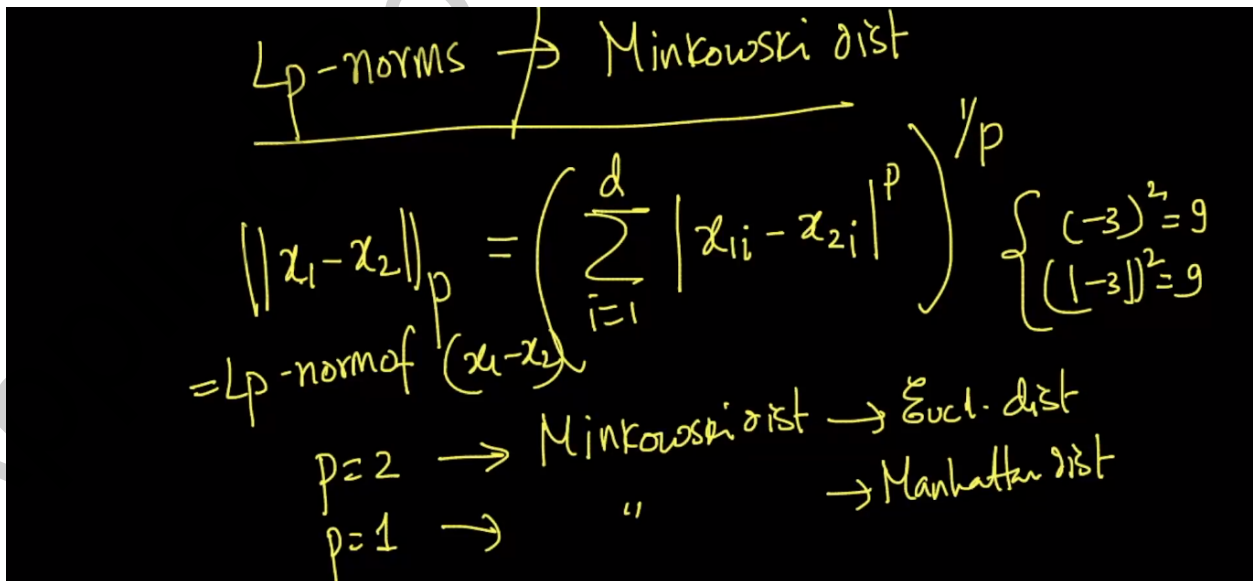 Lp-norms → Minkowski dist
||x₁-x₂||p = (∑ᵢ₌₁ᵈ |x₁ᵢ - x₂ᵢ|ᵖ)^1/p { (-3)²=9
(|-3|)²=9
=Lp-norm of (x₁-x₂)
p=2 → Minkowski dist → Eucl. dist
p=1 → " → Manhattan dist